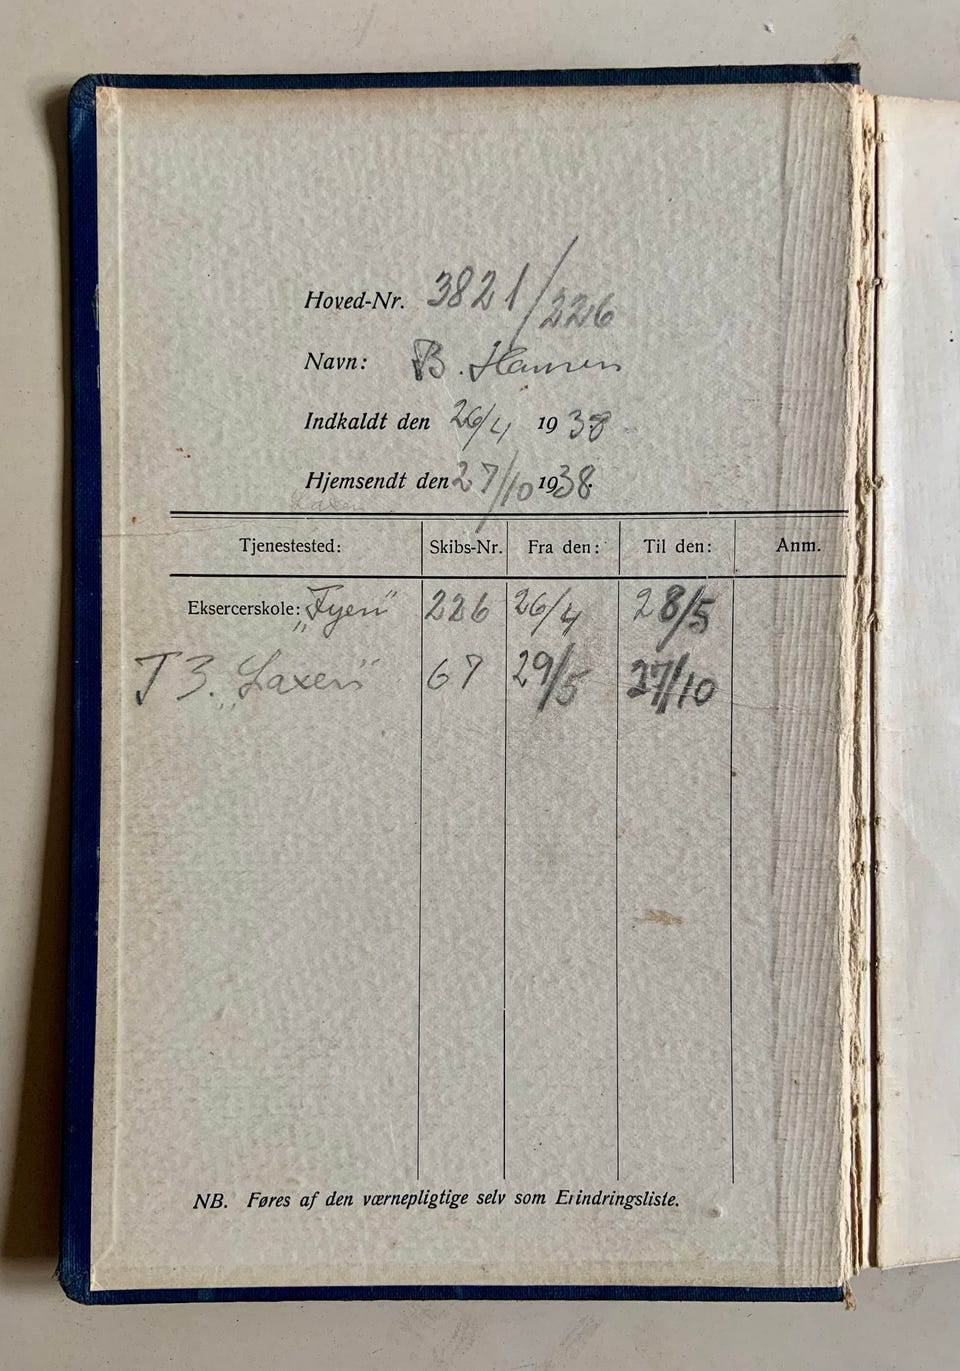 Hoved-Nr. 3821/226
Navn: B. Hansen
Indkaldt den 26/4 1938
Hjemsendt den 27/10 1938.
Tjenestested: Skibs-Nr. Fra den: Til den: Anm.
Eksercerskole: „Fyen" 226 26/4 28/5
T 3. „Laxen" 67 29/5 27/10
NB. Føres af den værnepligtige selv som Erindringsliste.